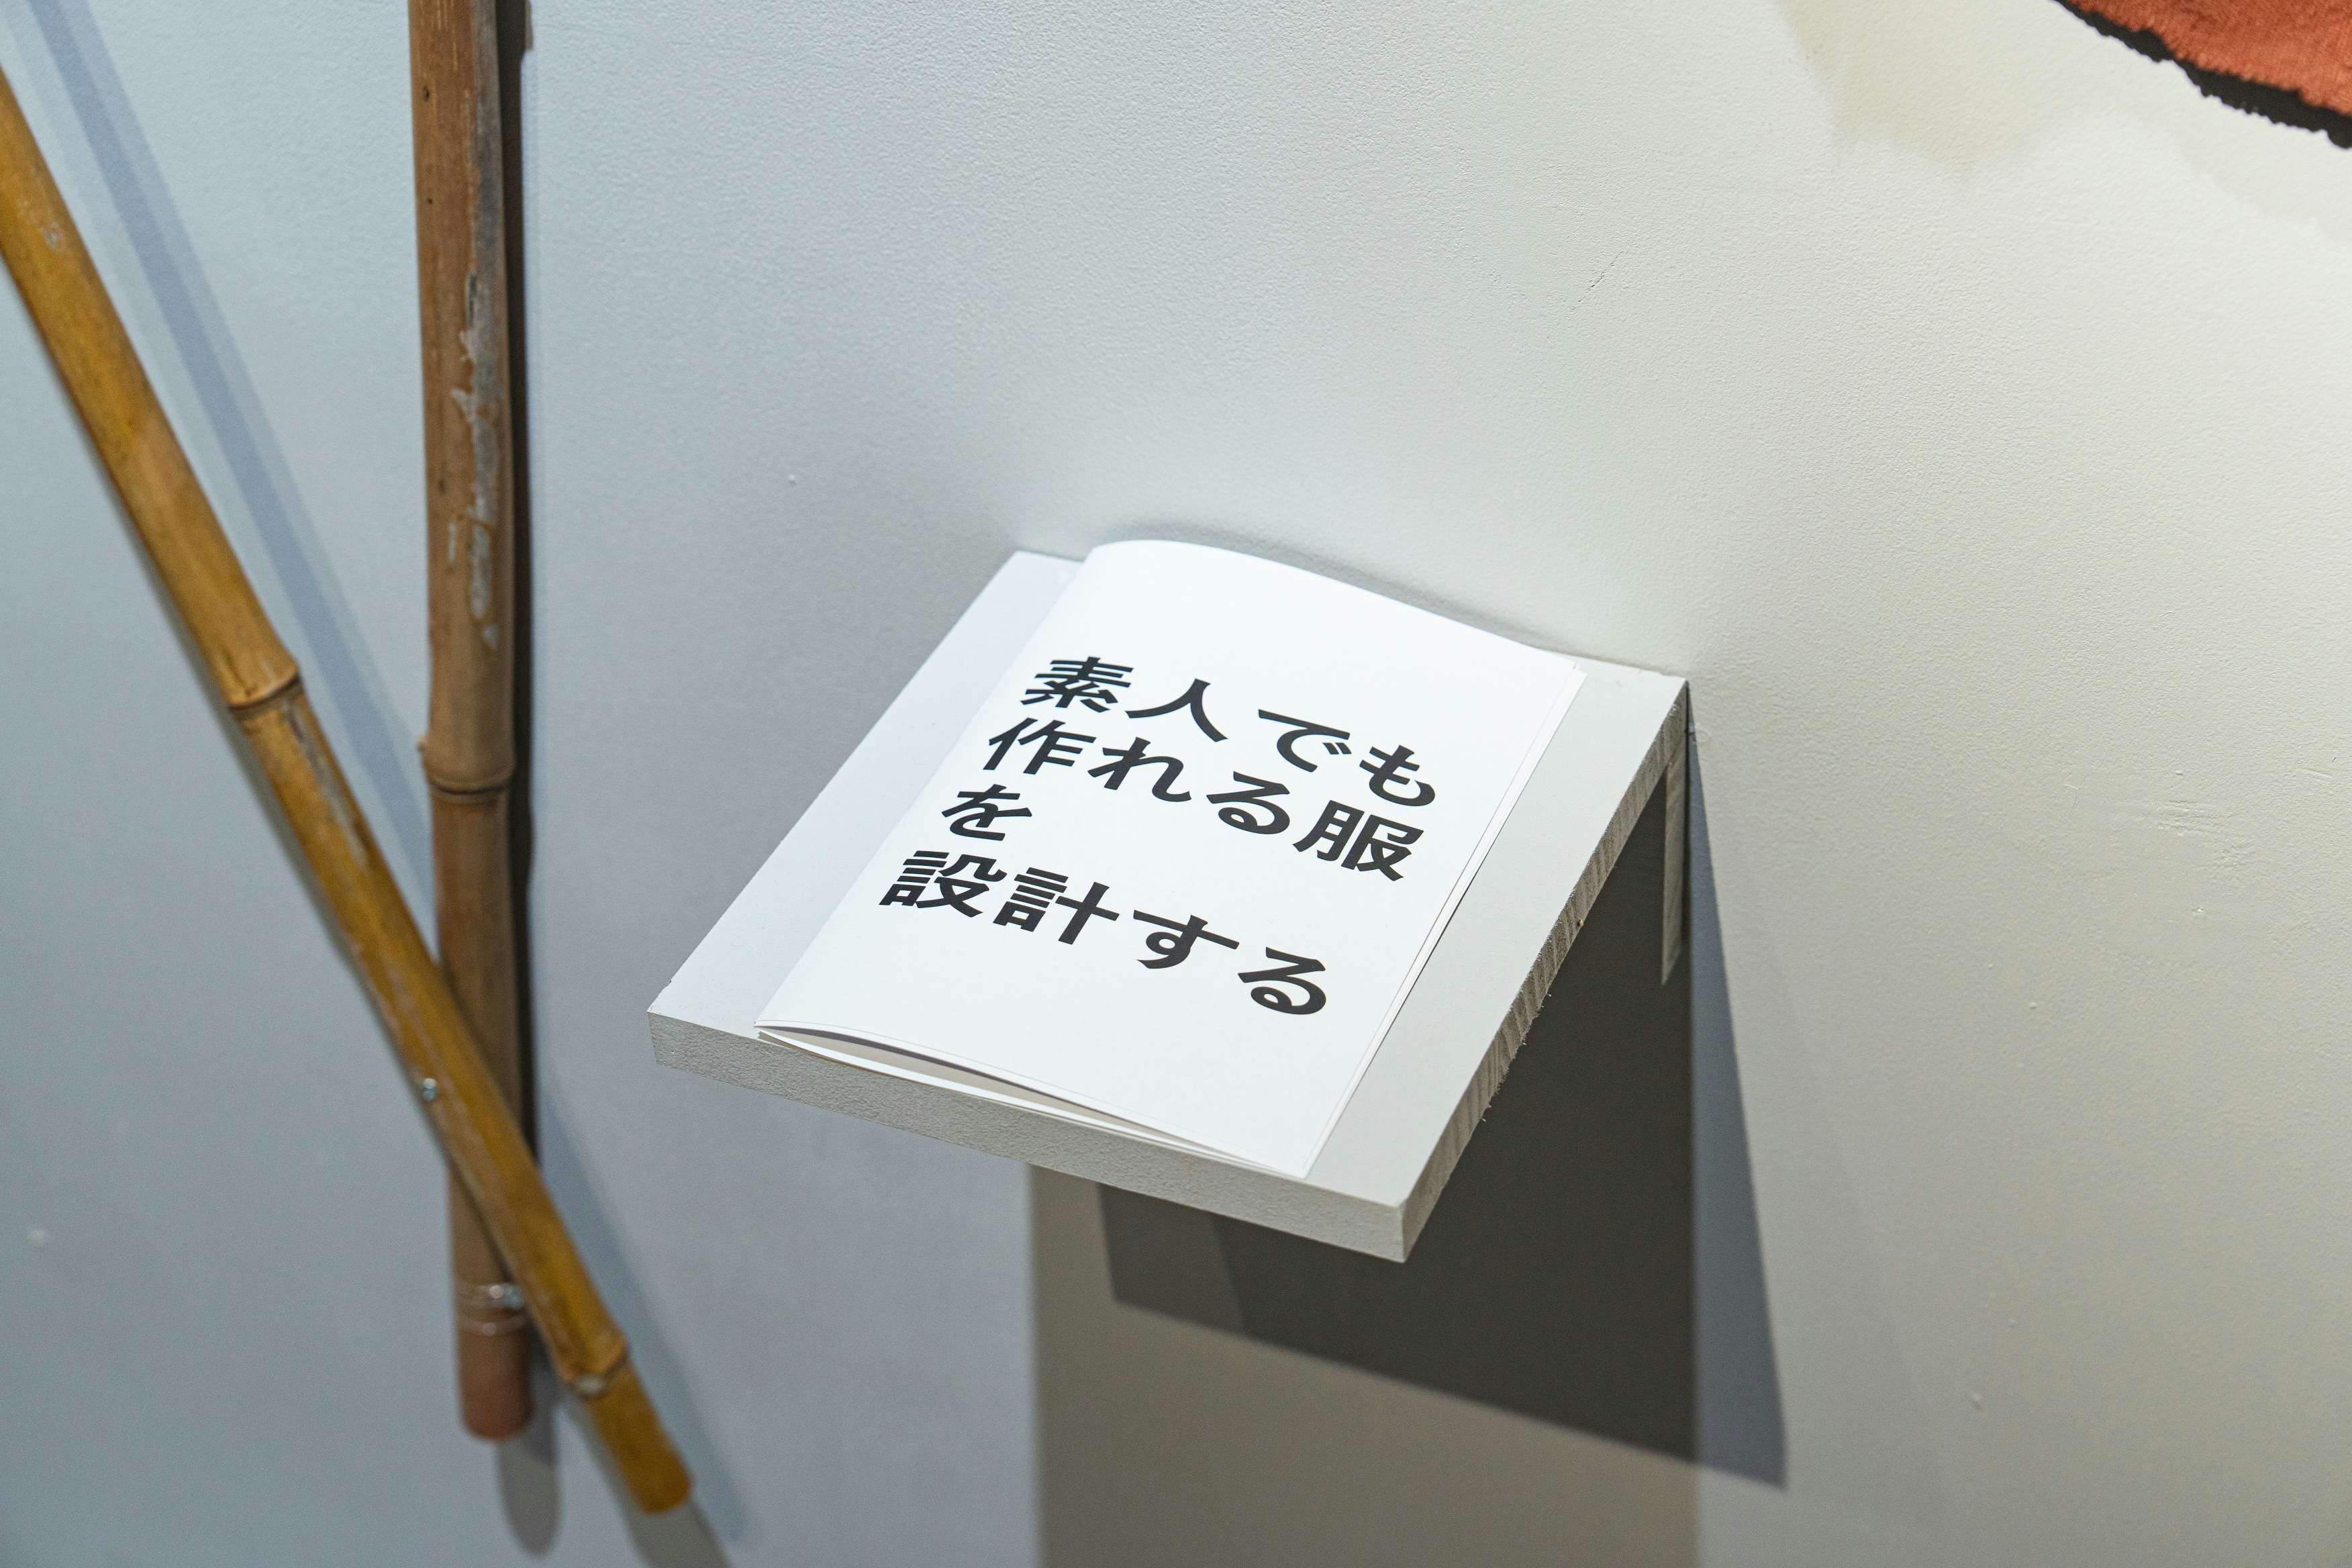 素人でも
作れる服
を
設計する